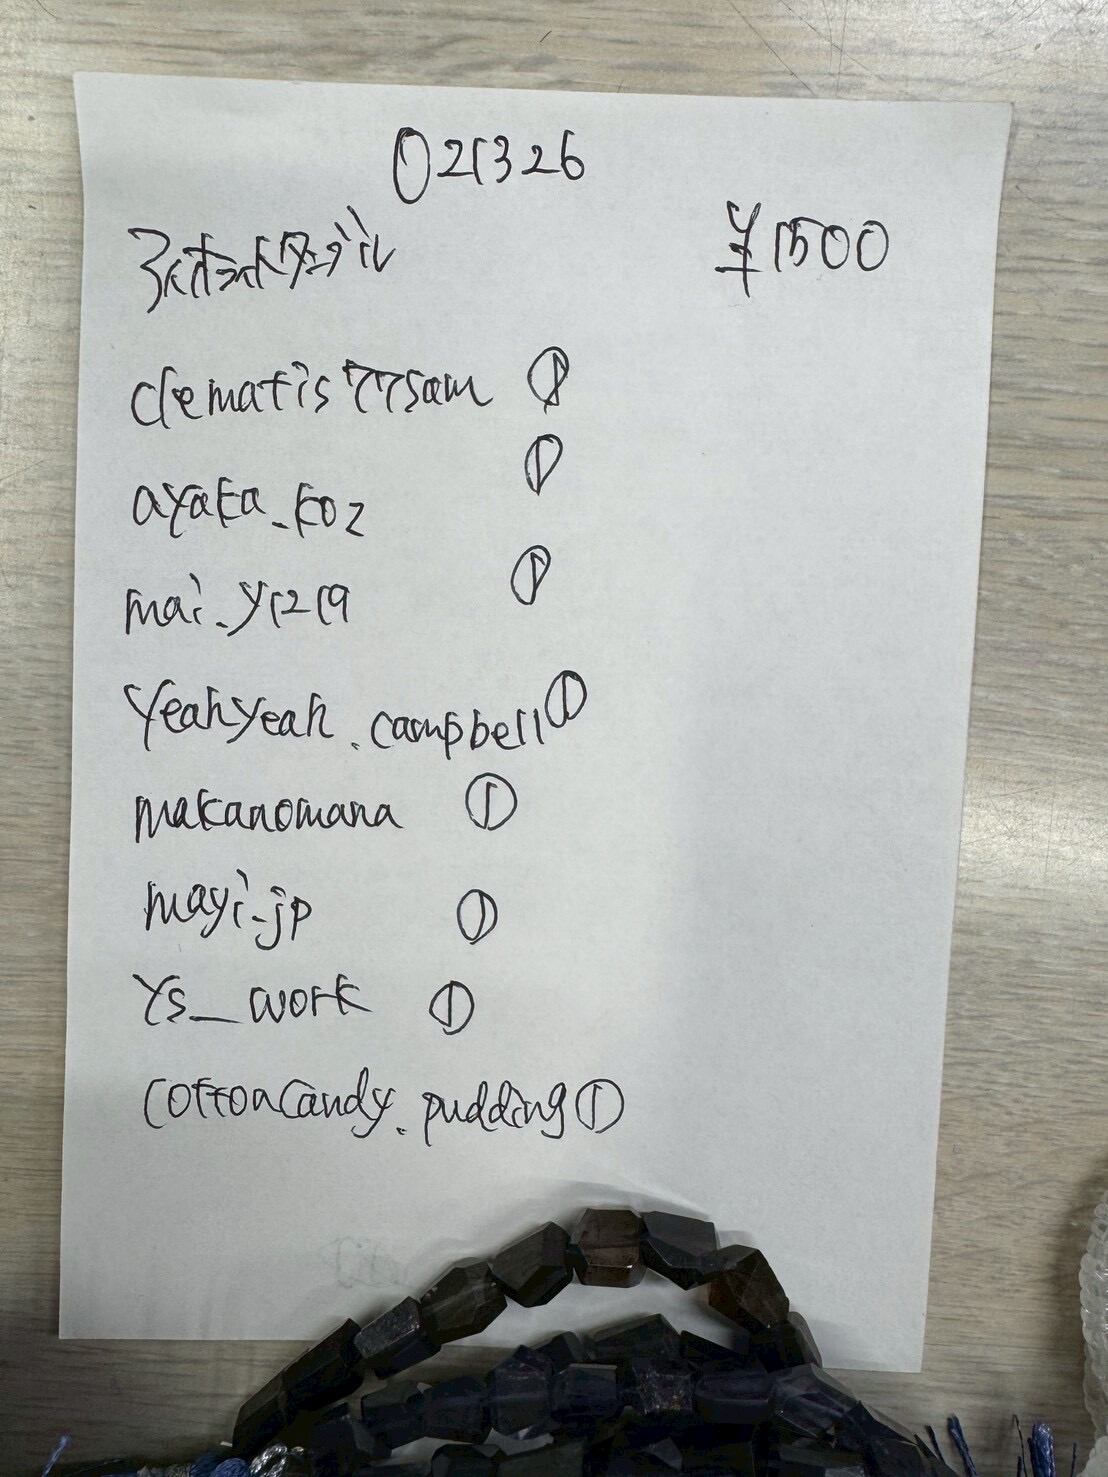 021326
¥1500
clematis77sam ①
ayaka_koz ①
mai_y1219 ①
yeahyeah.campbell ①
makanomana ①
mayi_jp ①
Ys__work ①
cottoncandy.pudding ①